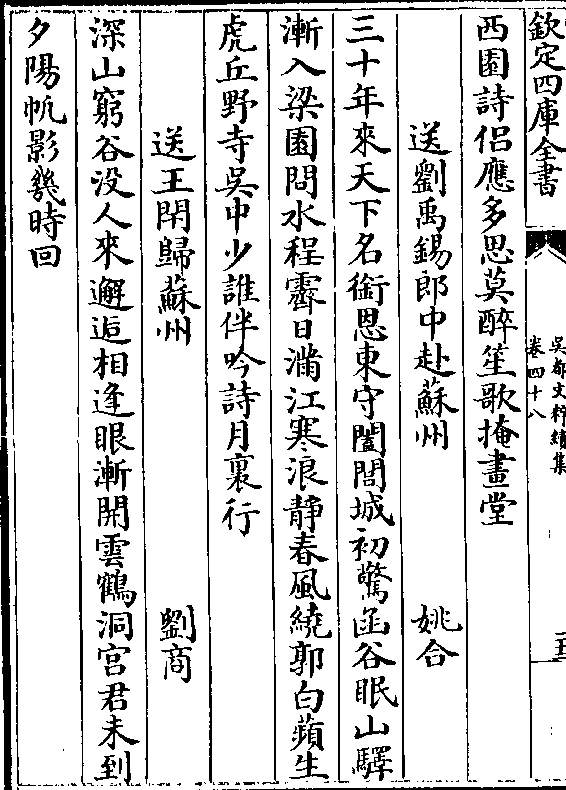 欽定四庫全書
吳都文粹續集
卷四十八
西園詩侶應多思莫醉笙歌掩畫堂
送劉禹錫郎中赴蘇州 姚合
三十年來天下名銜恩東守闔閭城初驚函谷眠山驛
漸入梁園問水程霽日滿江寒浪靜春風繞郭白蘋生
虎丘野寺吳中少誰伴吟詩月裏行
送王閈歸蘇州 劉商
深山窮谷没人來邂逅相逢眼漸開雲鶴洞宫君未到
夕陽帆影幾時回